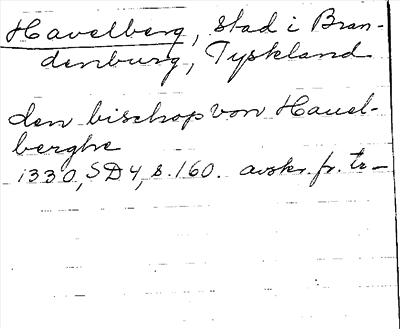 Havelberg, stad i Bran-
denburg, Tyskland
den bischop von Hauel-
berghe
1330, SD4, s. 160. avskr. fr. tr-